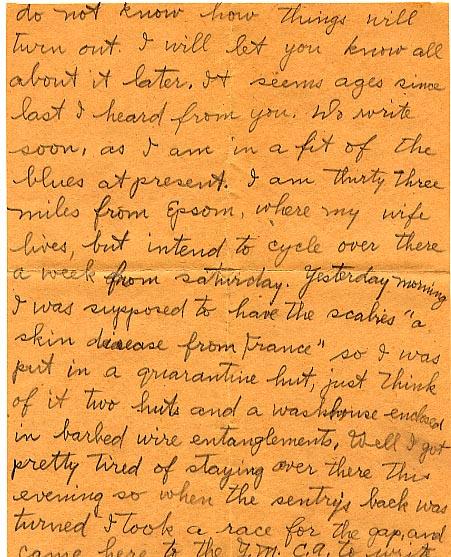 do not know how things will
turn out. I will let you know all
about it later. It seems ages since
last I heard from you. Do write
soon, as I am in a fit of the
blues at present. I am thirty three
miles from Epsom, where my wife
lives, but intend to cycle over there
a week from saturday. Yesterday morning
I was supposed to have the scabies "a
skin disease from France" so I was
put in a quarantine hut, just think
of it two huts and a washhouse enclosed
in barbed wire entanglements. Well I got
pretty tired of staying over there this
evening so when the sentrys back was
turned I took a race for the gap, and
came here to the Y.M.C.A. to write